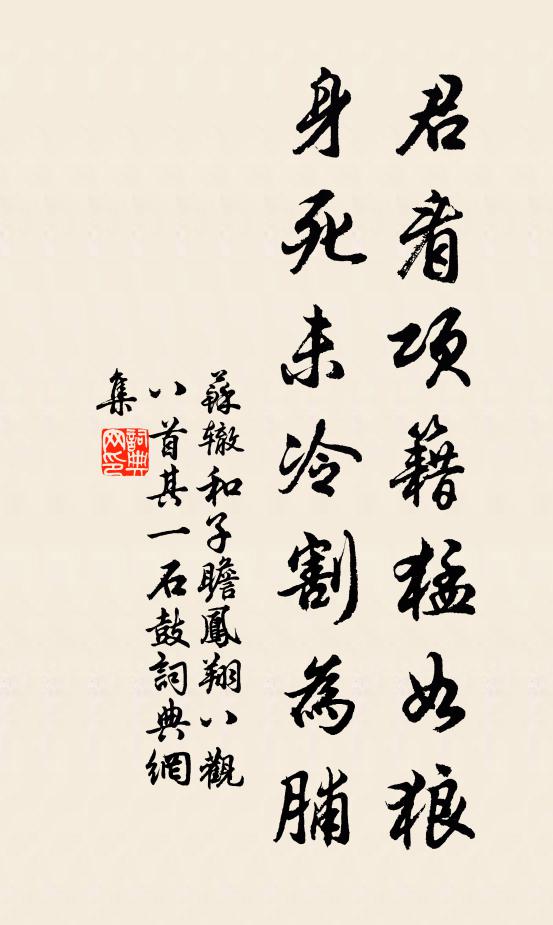 君看項籍猛如狼
身死未冷割為脯
蘇轍和子瞻鳳翔八觀
八首其一石鼓詞典網
集
詞典
网印